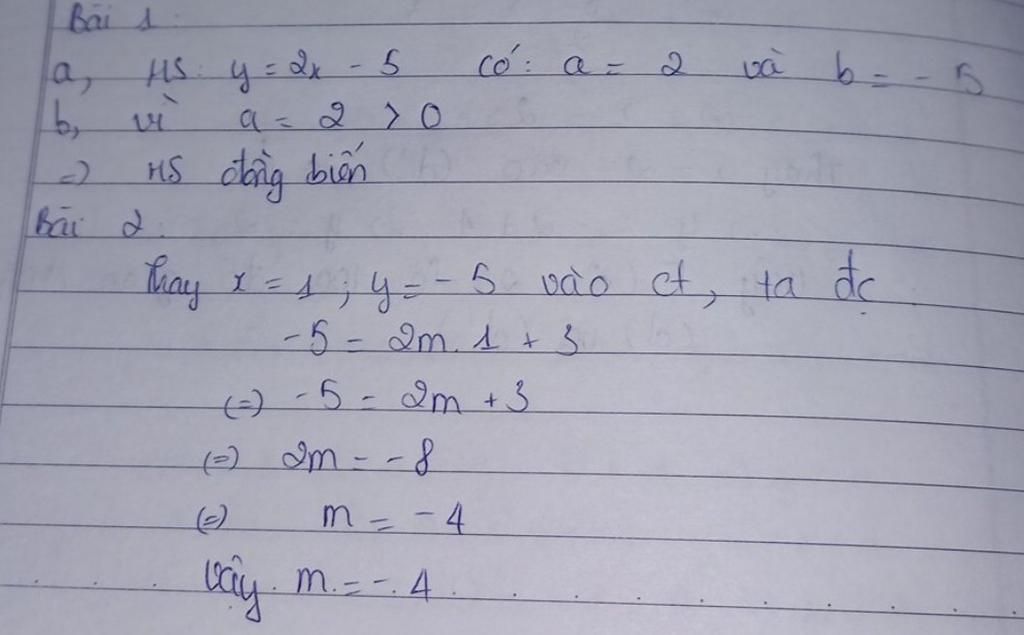 Bài 1:
a, HS: y = 2x - 5 có: a = 2 và b = - 5
b, vì a = 2 > 0
=> HS đồng biến
Bài 2:
Thay x = 1 ; y = - 5 vào ct, ta đc
-5 = 2m. 1 + 3
(=) -5 = 2m + 3
(=) 2m = - 8
(=) m = - 4
Vậy m = - 4